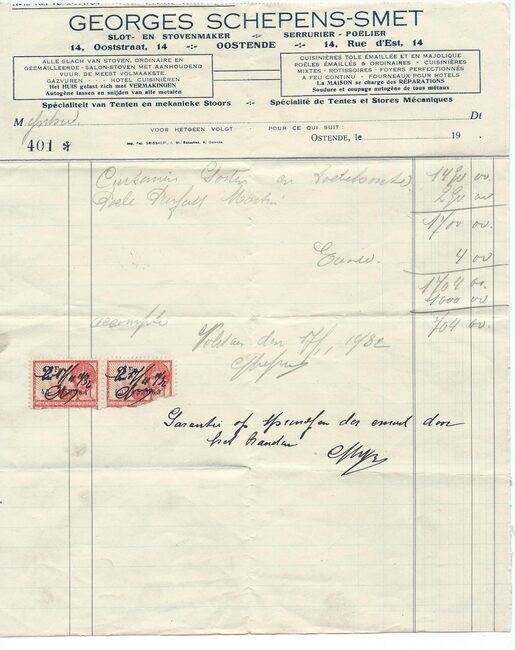 GEORGES SCHEPENS-SMET
SLOT- EN STOVENMAKER -:- SERRURIER - POÊLIER
14, Ooststraat, 14 -:- OOSTENDE -:- 14, Rue d'Est, 14
ALLE SLACH VAN STOVEN, ORDINAIRE EN
GEËMAILLEERDE - SALON-STOVEN MET AANHOUDEND
VUUR, DE MEEST VOLMAAKSTE.
GAZVUREN - · · · HOTEL CUISINIÈREN
Het HUIS gelast zich met VERMAKINGEN
Autogène lassen en snijden van alle metalen
CUISINIÈRES TOLE ÉMAILLÉE ET EN MAJOLIQUE
POÊLES ÉMAILLÉS & ORDINAIRES - CUISINIÈRES
MIXTES - ROTISSOIRES - FOYERS PERFECTIONNÉS
A FEU CONTINU - FOURNEAUX POUR HOTELS
La MAISON se charge des RÉPARATIONS
Soudure et coupage autogène de tous métaux
Spécialiteit van Tenten en mekanieke Stoors -:- Spécialité de Tentes et Stores Mécaniques
M Dt
VOOR HETGEEN VOLGT : POUR CE QUI SUIT :
401
OSTENDE, le 19
en 1410 00
290 00
1700 00
4 00
1704 00
1000 00
accompte 704 00
Voldaan den 17/1 1932
Garantie op springen der email door
het branden